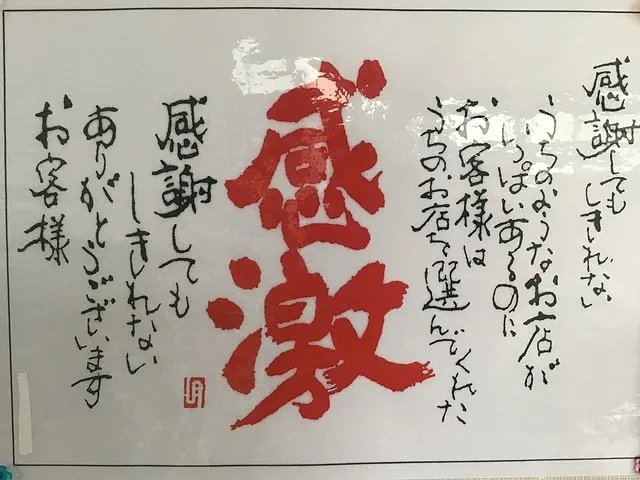 感謝しても
しきれない
うちのようなお店が
いっぱいあるのに
お客様は
うちのお店を選んでくれた
感激
感謝しても
しきれない
ありがとうございます
お客様